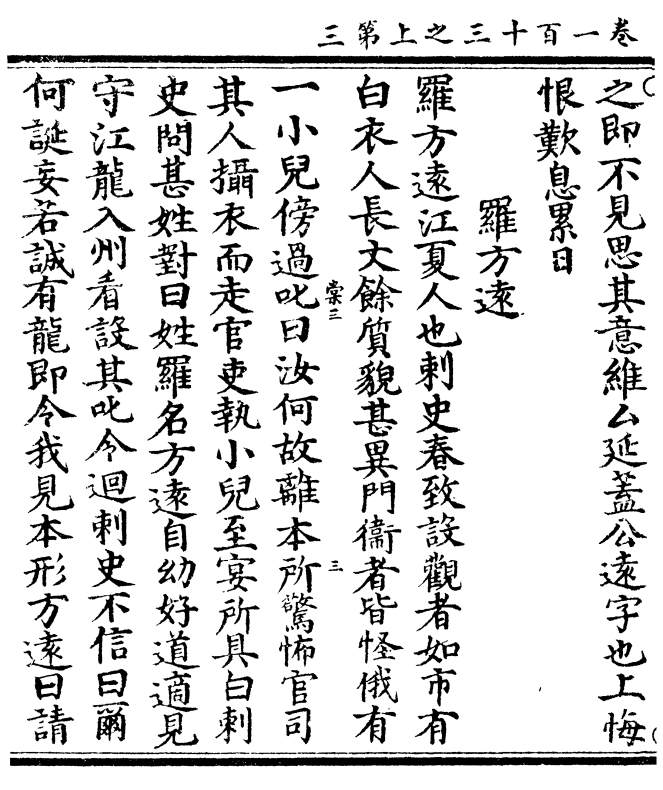 卷一百十三之上第三
之即不見思其意維厶延蓋公遠字也上悔
恨歎息累日
羅方遠
羅方遠江夏人也刺史春致設觀者如市有
白衣人長丈餘質貌甚異門衞者皆怪俄有
棠三
三
一小兒傍過叱曰汝何故離本所驚怖官司
其人攝衣而走官吏執小兒至宴所具白刺
史問甚姓對曰姓羅名方遠自幼好道適見
守江龍入州看設其叱令迴刺史不信曰爾
何誕妄若誠有龍即令我見本形方遠曰請